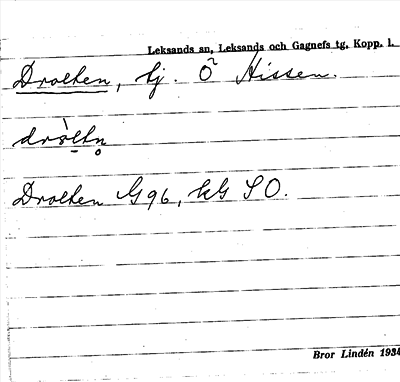 Leksands an, Leksands och Gagnefs tg, Kopp. l.
Drolten, tj. Ö Hissen.
dròltn̥
Drolten G96, kG SO.
Bror Lindén 1934